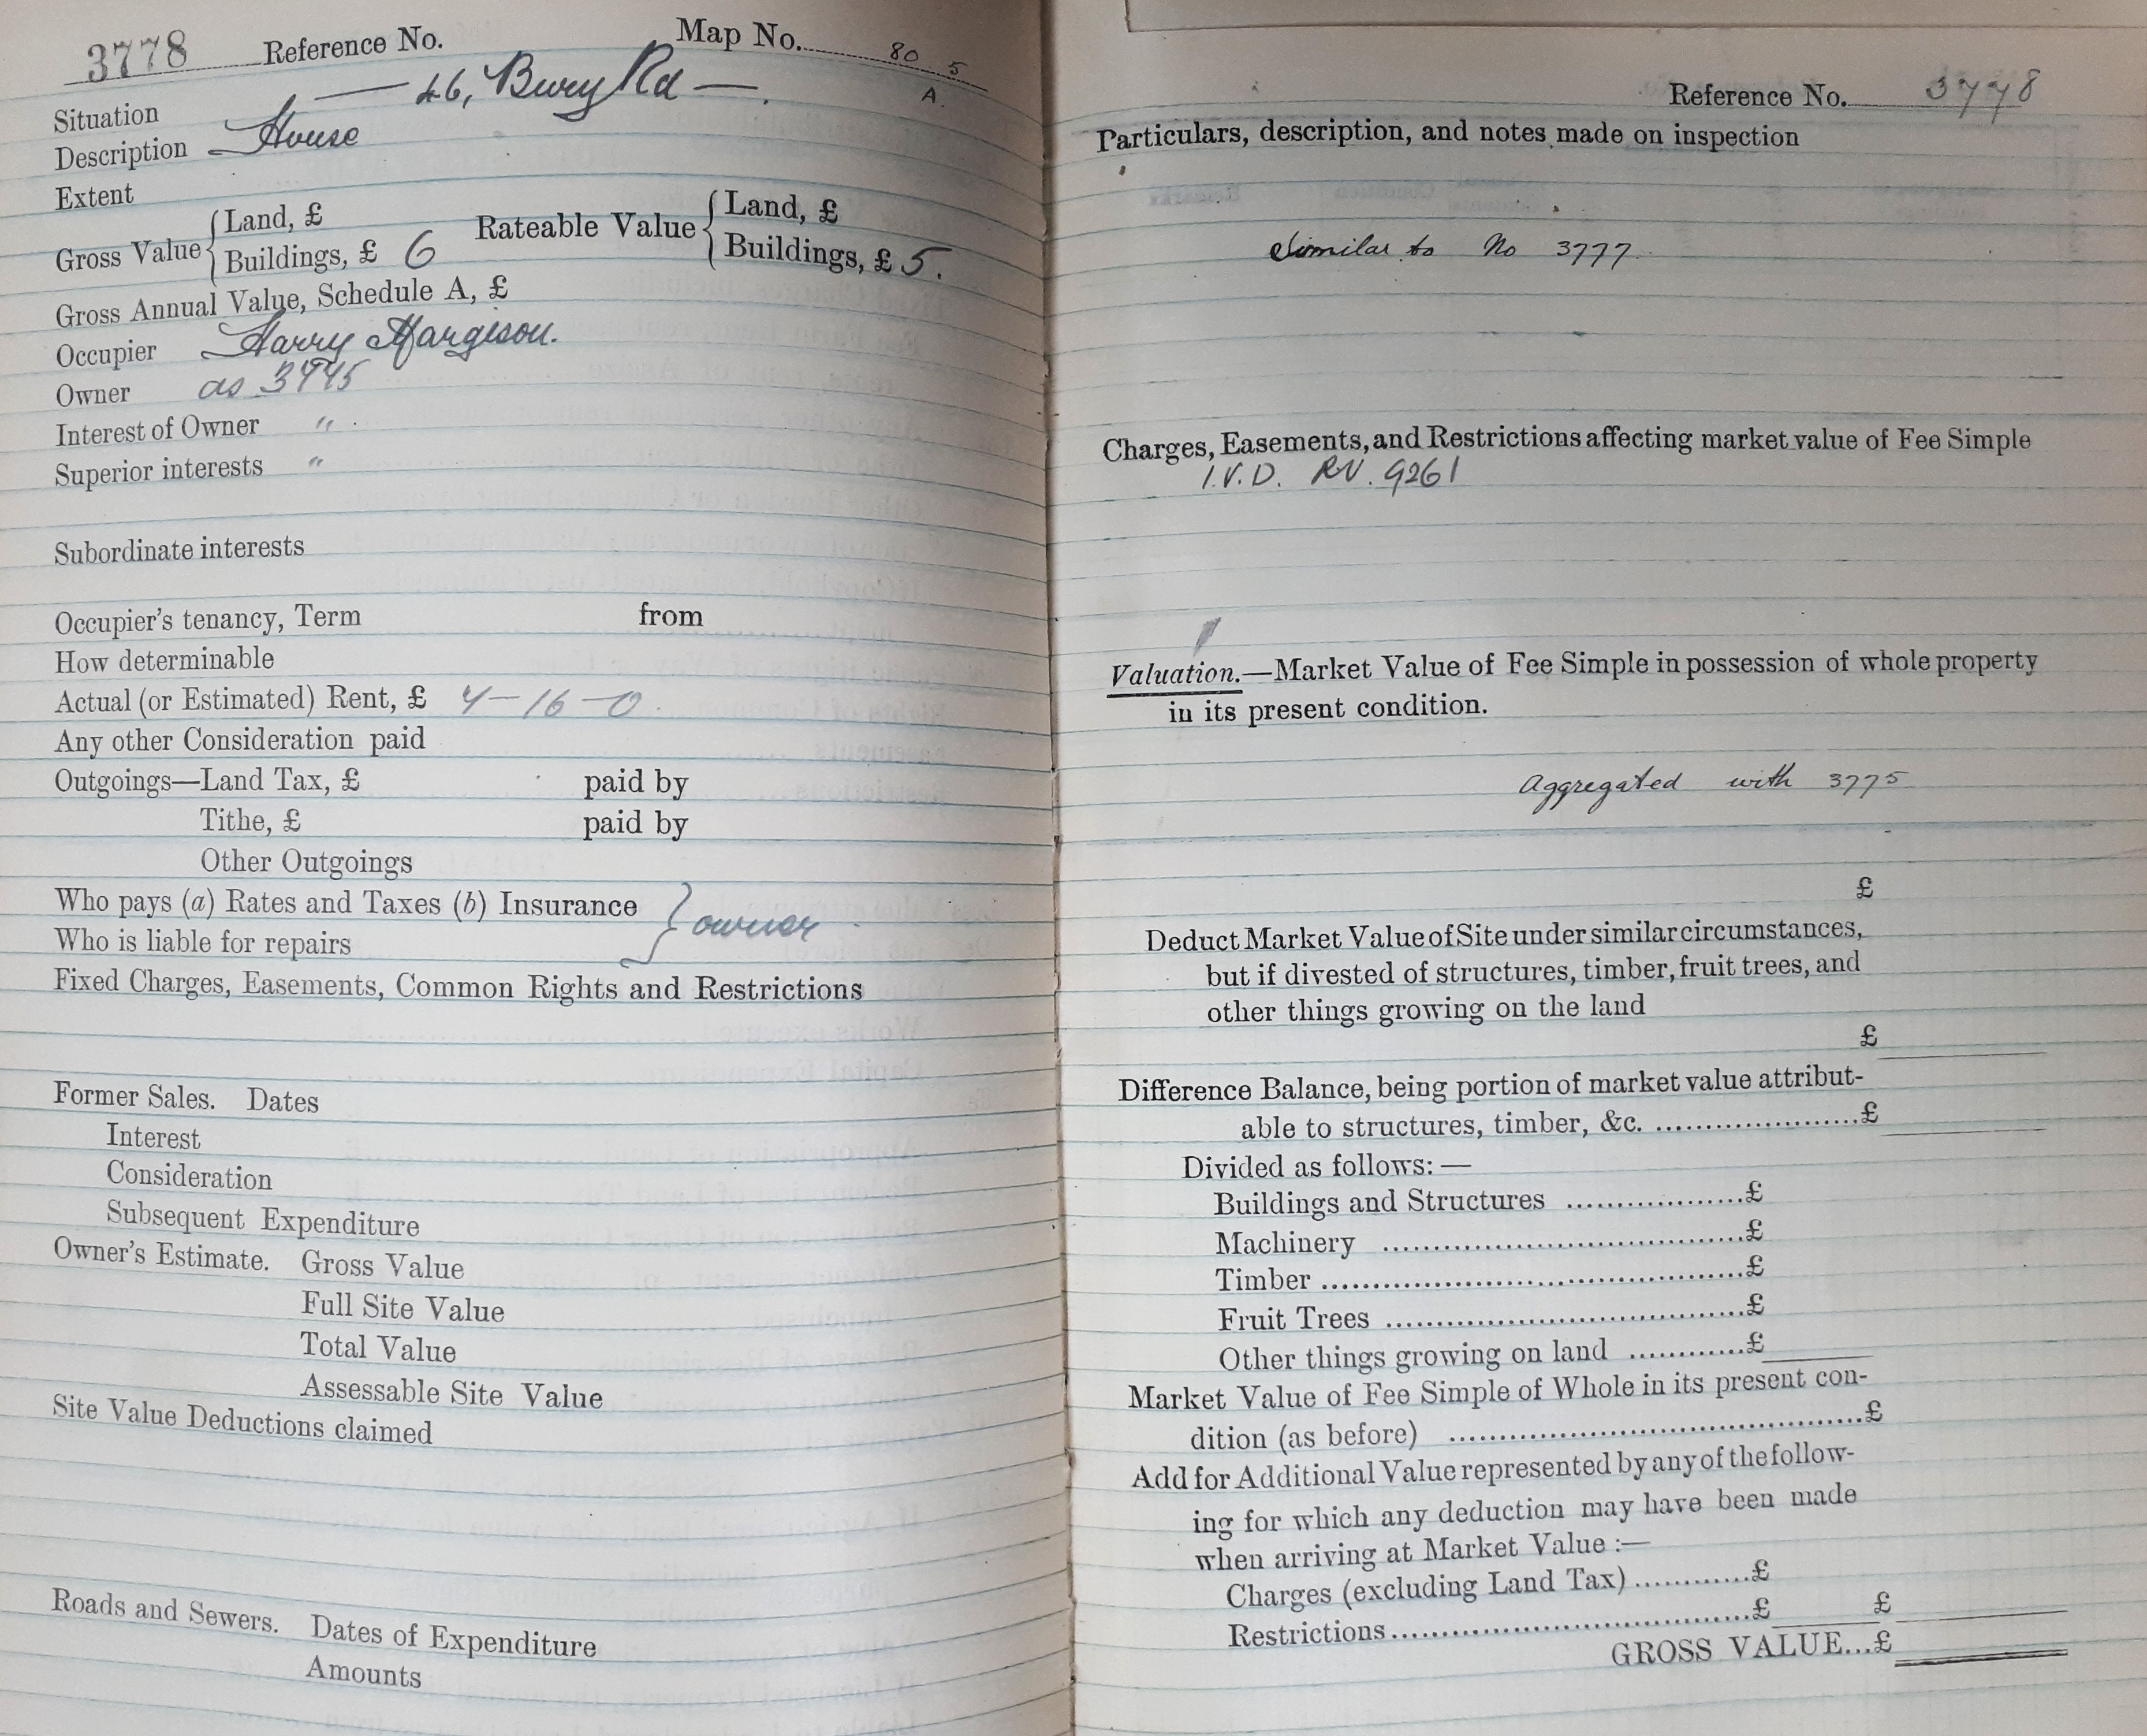 3778 Reference No. Map No. 80 5
A.
Situation — 46, Bury Rd —.
Description House
Extent
Gross Value { Land, £ Rateable Value { Land, £
Buildings, £ 6 Buildings, £ 5.
Gross Annual Value, Schedule A, £
Occupier Harry Margison.
Owner as 3775
Interest of Owner "
Superior interests "
Subordinate interests
Occupier's tenancy, Term from
How determinable
Actual (or Estimated) Rent, £ 4-16-0.
Any other Consideration paid
Outgoings—Land Tax, £ paid by
Tithe, £ paid by
Other Outgoings
Who pays (a) Rates and Taxes (b) Insurance } owner
Who is liable for repairs
Fixed Charges, Easements, Common Rights and Restrictions
Former Sales. Dates
Interest
Consideration
Subsequent Expenditure
Owner's Estimate. Gross Value
Full Site Value
Total Value
Assessable Site Value
Site Value Deductions claimed
Roads and Sewers. Dates of Expenditure
Amounts
Reference No. 3778
Particulars, description, and notes made on inspection
Similar to No 3777
Charges, Easements, and Restrictions affecting market value of Fee Simple
I.V.D. RV. 9261
Valuation.—Market Value of Fee Simple in possession of whole property
in its present condition.
Aggregated with 3775
£
Deduct Market Value of Site under similar circumstances,
but if divested of structures, timber, fruit trees, and
other things growing on the land
£
Difference Balance, being portion of market value attribut-
able to structures, timber, &c. ....................£
Divided as follows:—
Buildings and Structures ..................£
Machinery ....................................£
Timber ..........................................£
Fruit Trees ...................................£
Other things growing on land ............£
Market Value of Fee Simple of Whole in its present con-
dition (as before) .........................................£
Add for Additional Value represented by any of the follow-
ing for which any deduction may have been made
when arriving at Market Value :—
Charges (excluding Land Tax) ............£
Restrictions....................................£ £
GROSS VALUE...£